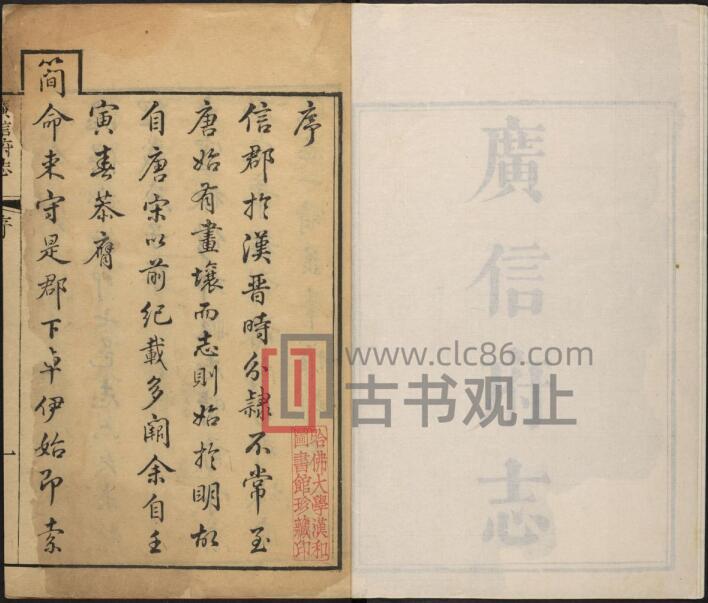 序
信郡於漢晉時分隸不常至
唐始有畫壤而志則始於明故
自唐宋以前紀載多闕余自壬
寅春恭膺
簡命来守是郡下車伊始即索
廣信府志
序
一
哈佛大學漢和
圖書館珍藏印
廣信府志
www.clc86.com
古书观止